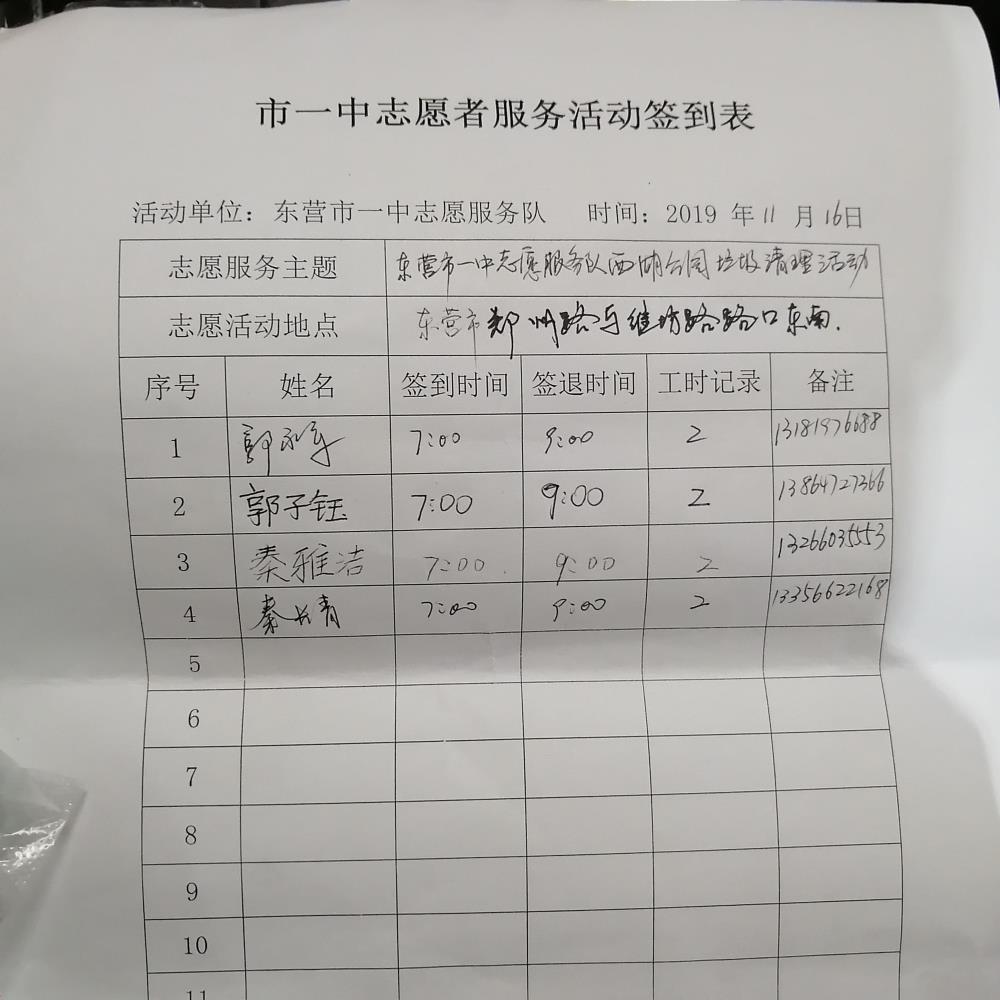 市一中志愿者服务活动签到表
活动单位：东营市一中志愿服务队 时间：2019 年 11 月 16日
志愿服务主题 东营市一中志愿服务队西湖公园垃圾清理活动
志愿活动地点 东营市郑州路与潍坊路路口东南.
序号 姓名 签到时间 签退时间 工时记录 备注
1 郭永军 7:00 9:00 2 13181976688
2 郭子钰 7:00 9:00 2 13864727366
3 秦雅洁 7:00. 9:00 2 13266035553
4 秦长青 7:00 9:00 2 13356622168
5
6
7
8
9
10
11